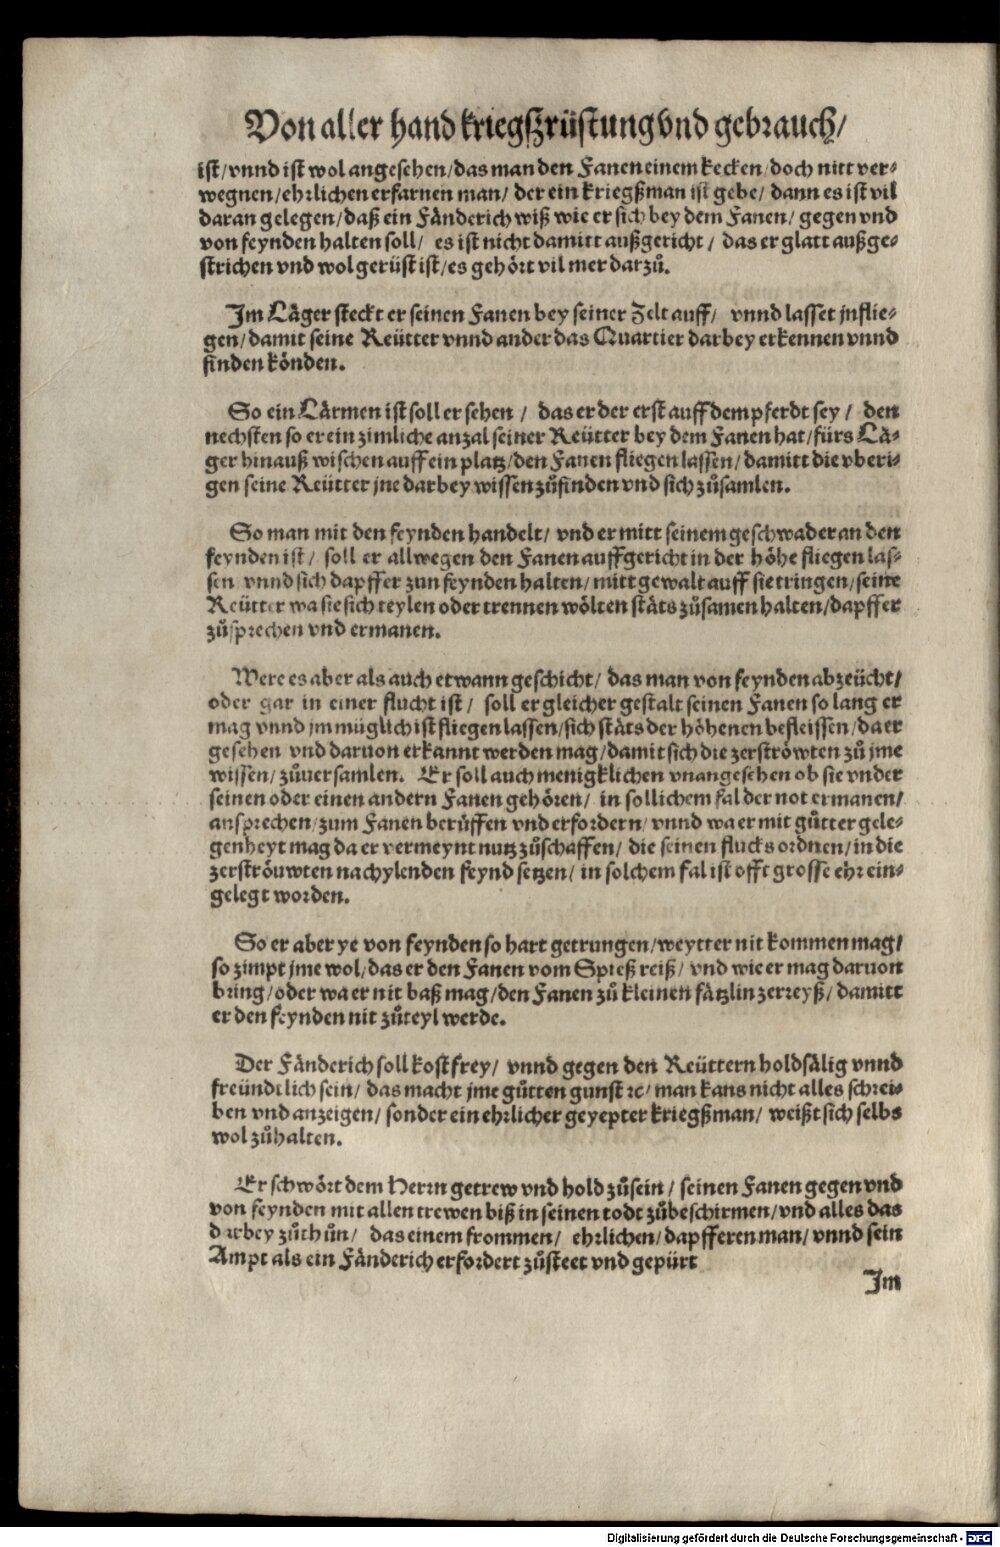 Von aller hand kriegßrüstung vnd gebrauch/
ist/ vnnd ist wol angesehen/ das man den Fanen einem kecken/ doch nitt ver-
wegnen/ ehrlichen erfarnen man/ der ein kriegßman ist gebe/ dann es ist vil
daran gelegen/ daß ein Fänderich wiß wie er sich bey dem Fanen/ gegen vnd
von feynden halten soll/ es ist nicht damitt außgericht/ das er glatt außge-
strichen vnd wol gerüst ist/ es gehört vil mer darzů.
Im Läger steckt er seinen Fanen bey seiner Zelt auff/ vnnd lasset jn flie-
gen/ damit seine Reütter vnnd ander das Quartier darbey erkennen vnnd
finden könden.
So ein Lärmen ist soll er sehen/ das er der erst auff dem pferdt sey/ den
nechsten so er ein zimliche anzal seiner Reütter bey dem Fanen hat/ fürs Lä-
ger hinauß wischen auff ein platz/ den Fanen fliegen lassen/ damitt die vberi-
gen seine Reütter jne darbey wissen zůfinden vnd sich zůsamlen.
So man mit den feynden handelt/ vnd er mitt seinem geschwader an den
feynden ist/ soll er allwegen den Fanen auffgericht in der höhe fliegen las-
sen vnnd sich dapffer zun feynden halten/ mitt gewalt auff sie tringen/ seine
Reütter wa sie sich teylen oder trennen wölten stäts zůsamen halten/ dapffer
zůsprechen vnd ermanen.
Were es aber als auch etwann geschicht/ das man von feynden abzeücht/
oder gar in einer flucht ist/ soll er gleicher gestalt seinen Fanen so lang er
mag vnnd jm müglich ist fliegen lassen/ sich stäts der höhenen befleissen/ da er
gesehen vnd daruon erkannt werden mag/ damit sich die zerströwten zů jme
wissen/ zůuersamlen. Er soll auch menigklichen vnangesehen ob sie vnder
seinen oder einen andern Fanen gehören/ in sollichem fal der not ermanen/
ansprechen/ zum Fanen berůffen vnd erfordern/ vnnd wa er mit gůtter gele-
genheyt mag da er vermeynt nutz zůschaffen/ die seinen flucks ordnen/ in die
zerströuwten nachylenden feynd setzen/ in solchem fal ist offt grosse ehr ein-
gelegt worden.
So er aber ye von feynden so hart getrungen/ weytter nit kommen mag/
so zimpt jme wol/ das er den Fanen vom Spieß reiß/ vnd wie er mag daruon
bring/ oder wa er nit baß mag/ den Fanen zů kleinen fätzlin zerreyß/ damitt
er den feynden nit zůteyl werde.
Der Fänderich soll kostfrey/ vnnd gegen den Reüttern holdsälig vnnd
freündtlich sein/ das macht jme gůtten gunst ꝛc/ man kans nicht alles schrei-
ben vnd anzeigen/ sonder ein ehrlicher geyepter kriegßman/ weißt sich selbs
wol zůhalten.
Er schwört dem Herrn getrew vnd hold zůsein/ seinen Fanen gegen vnd
von feynden mit allen trewen biß in seinen todt zůbeschirmen/ vnd alles das
darbey zůthůn/ das einem frommen/ ehrlichen/ dapfferen man/ vnnd sein
Ampt als ein Fänderich erfordert zůsteet vnd gepürt
Im
Digitalisierung gefördert durch die Deutsche Forschungsgemeinschaft - DFG